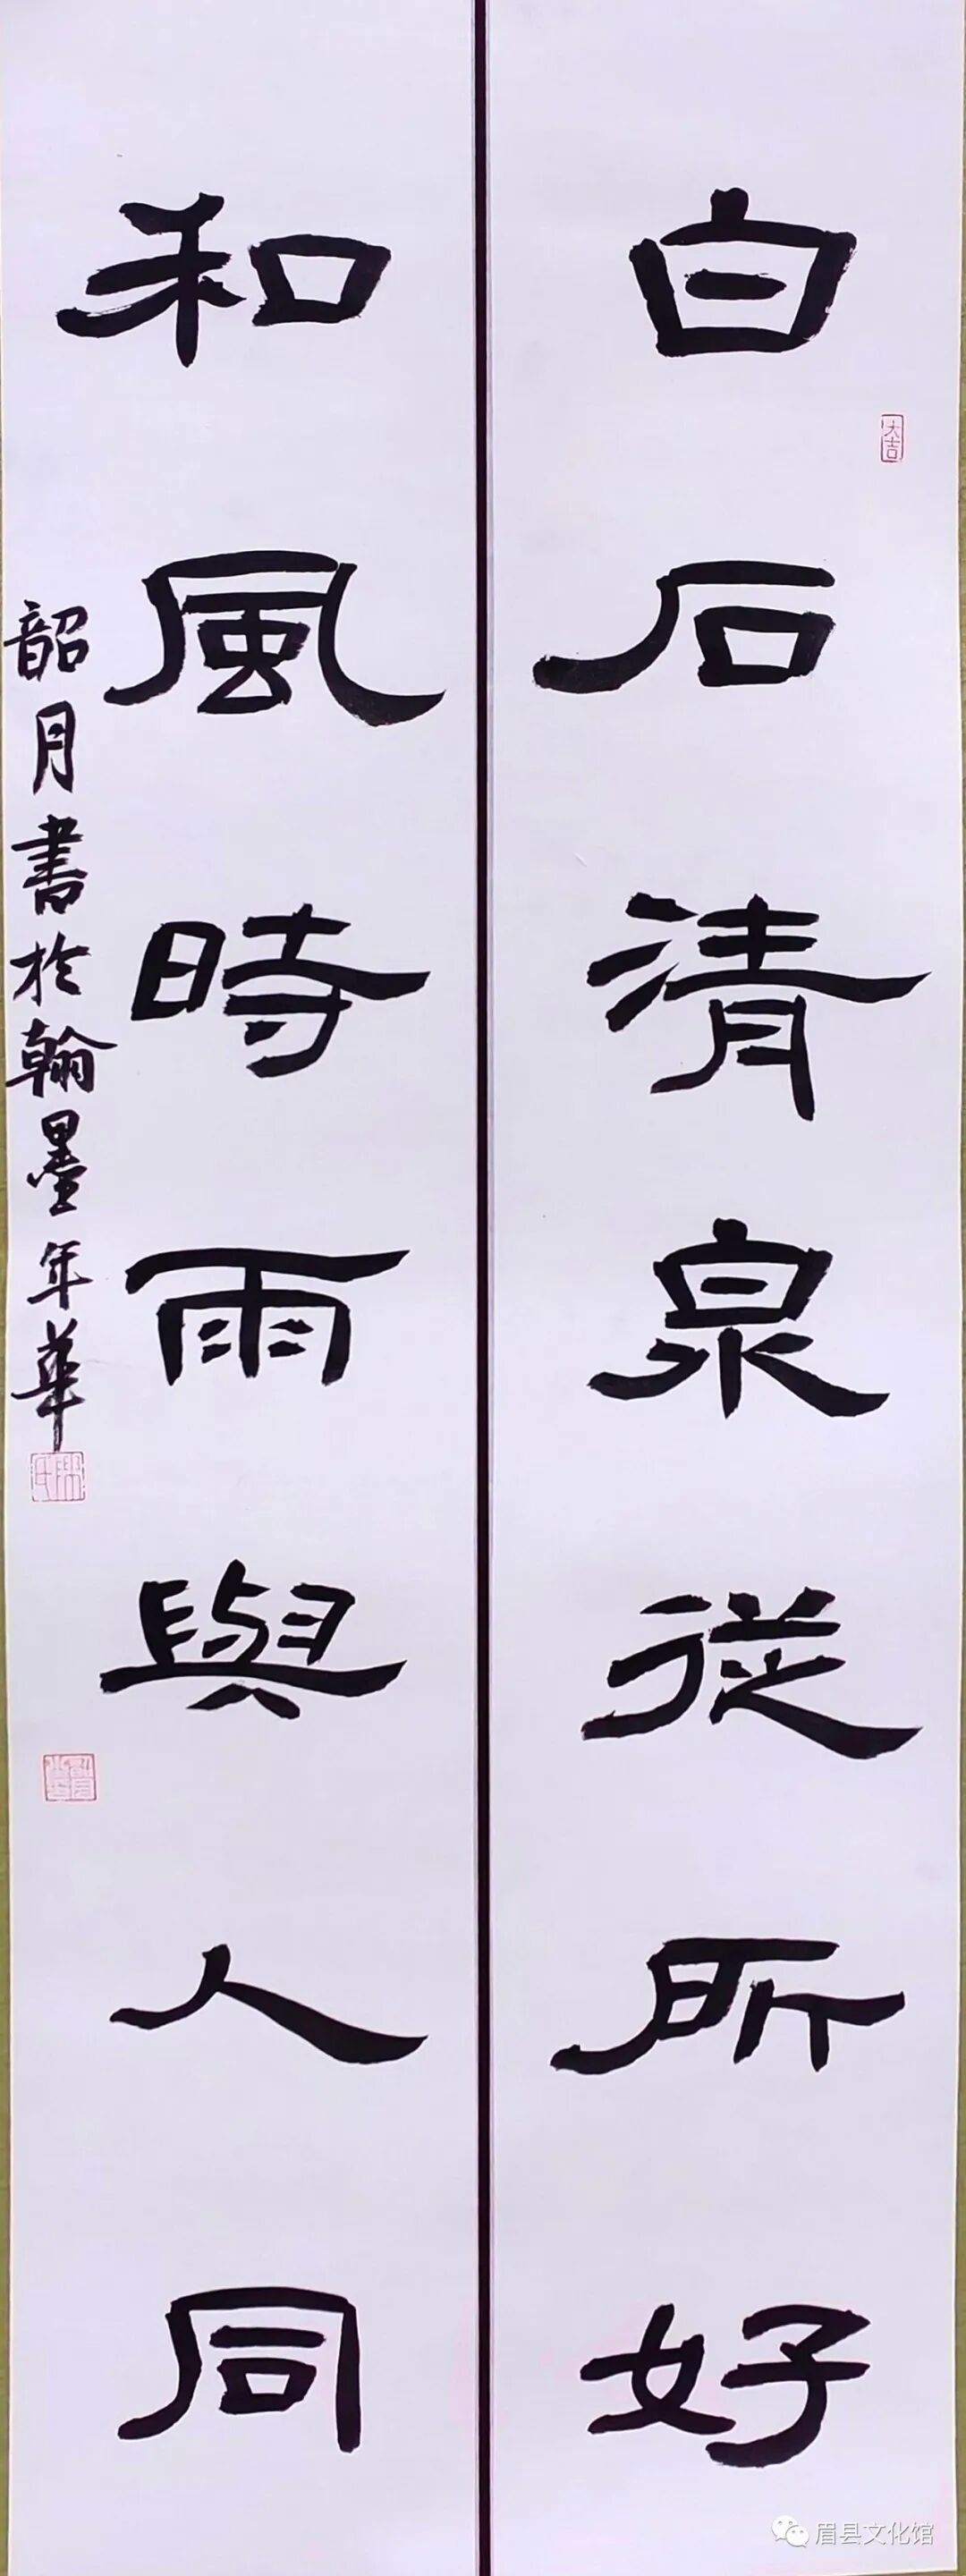 白石清泉從所好
大吉
和風時雨與人同
韶月書於翰墨年華
眉县文化馆